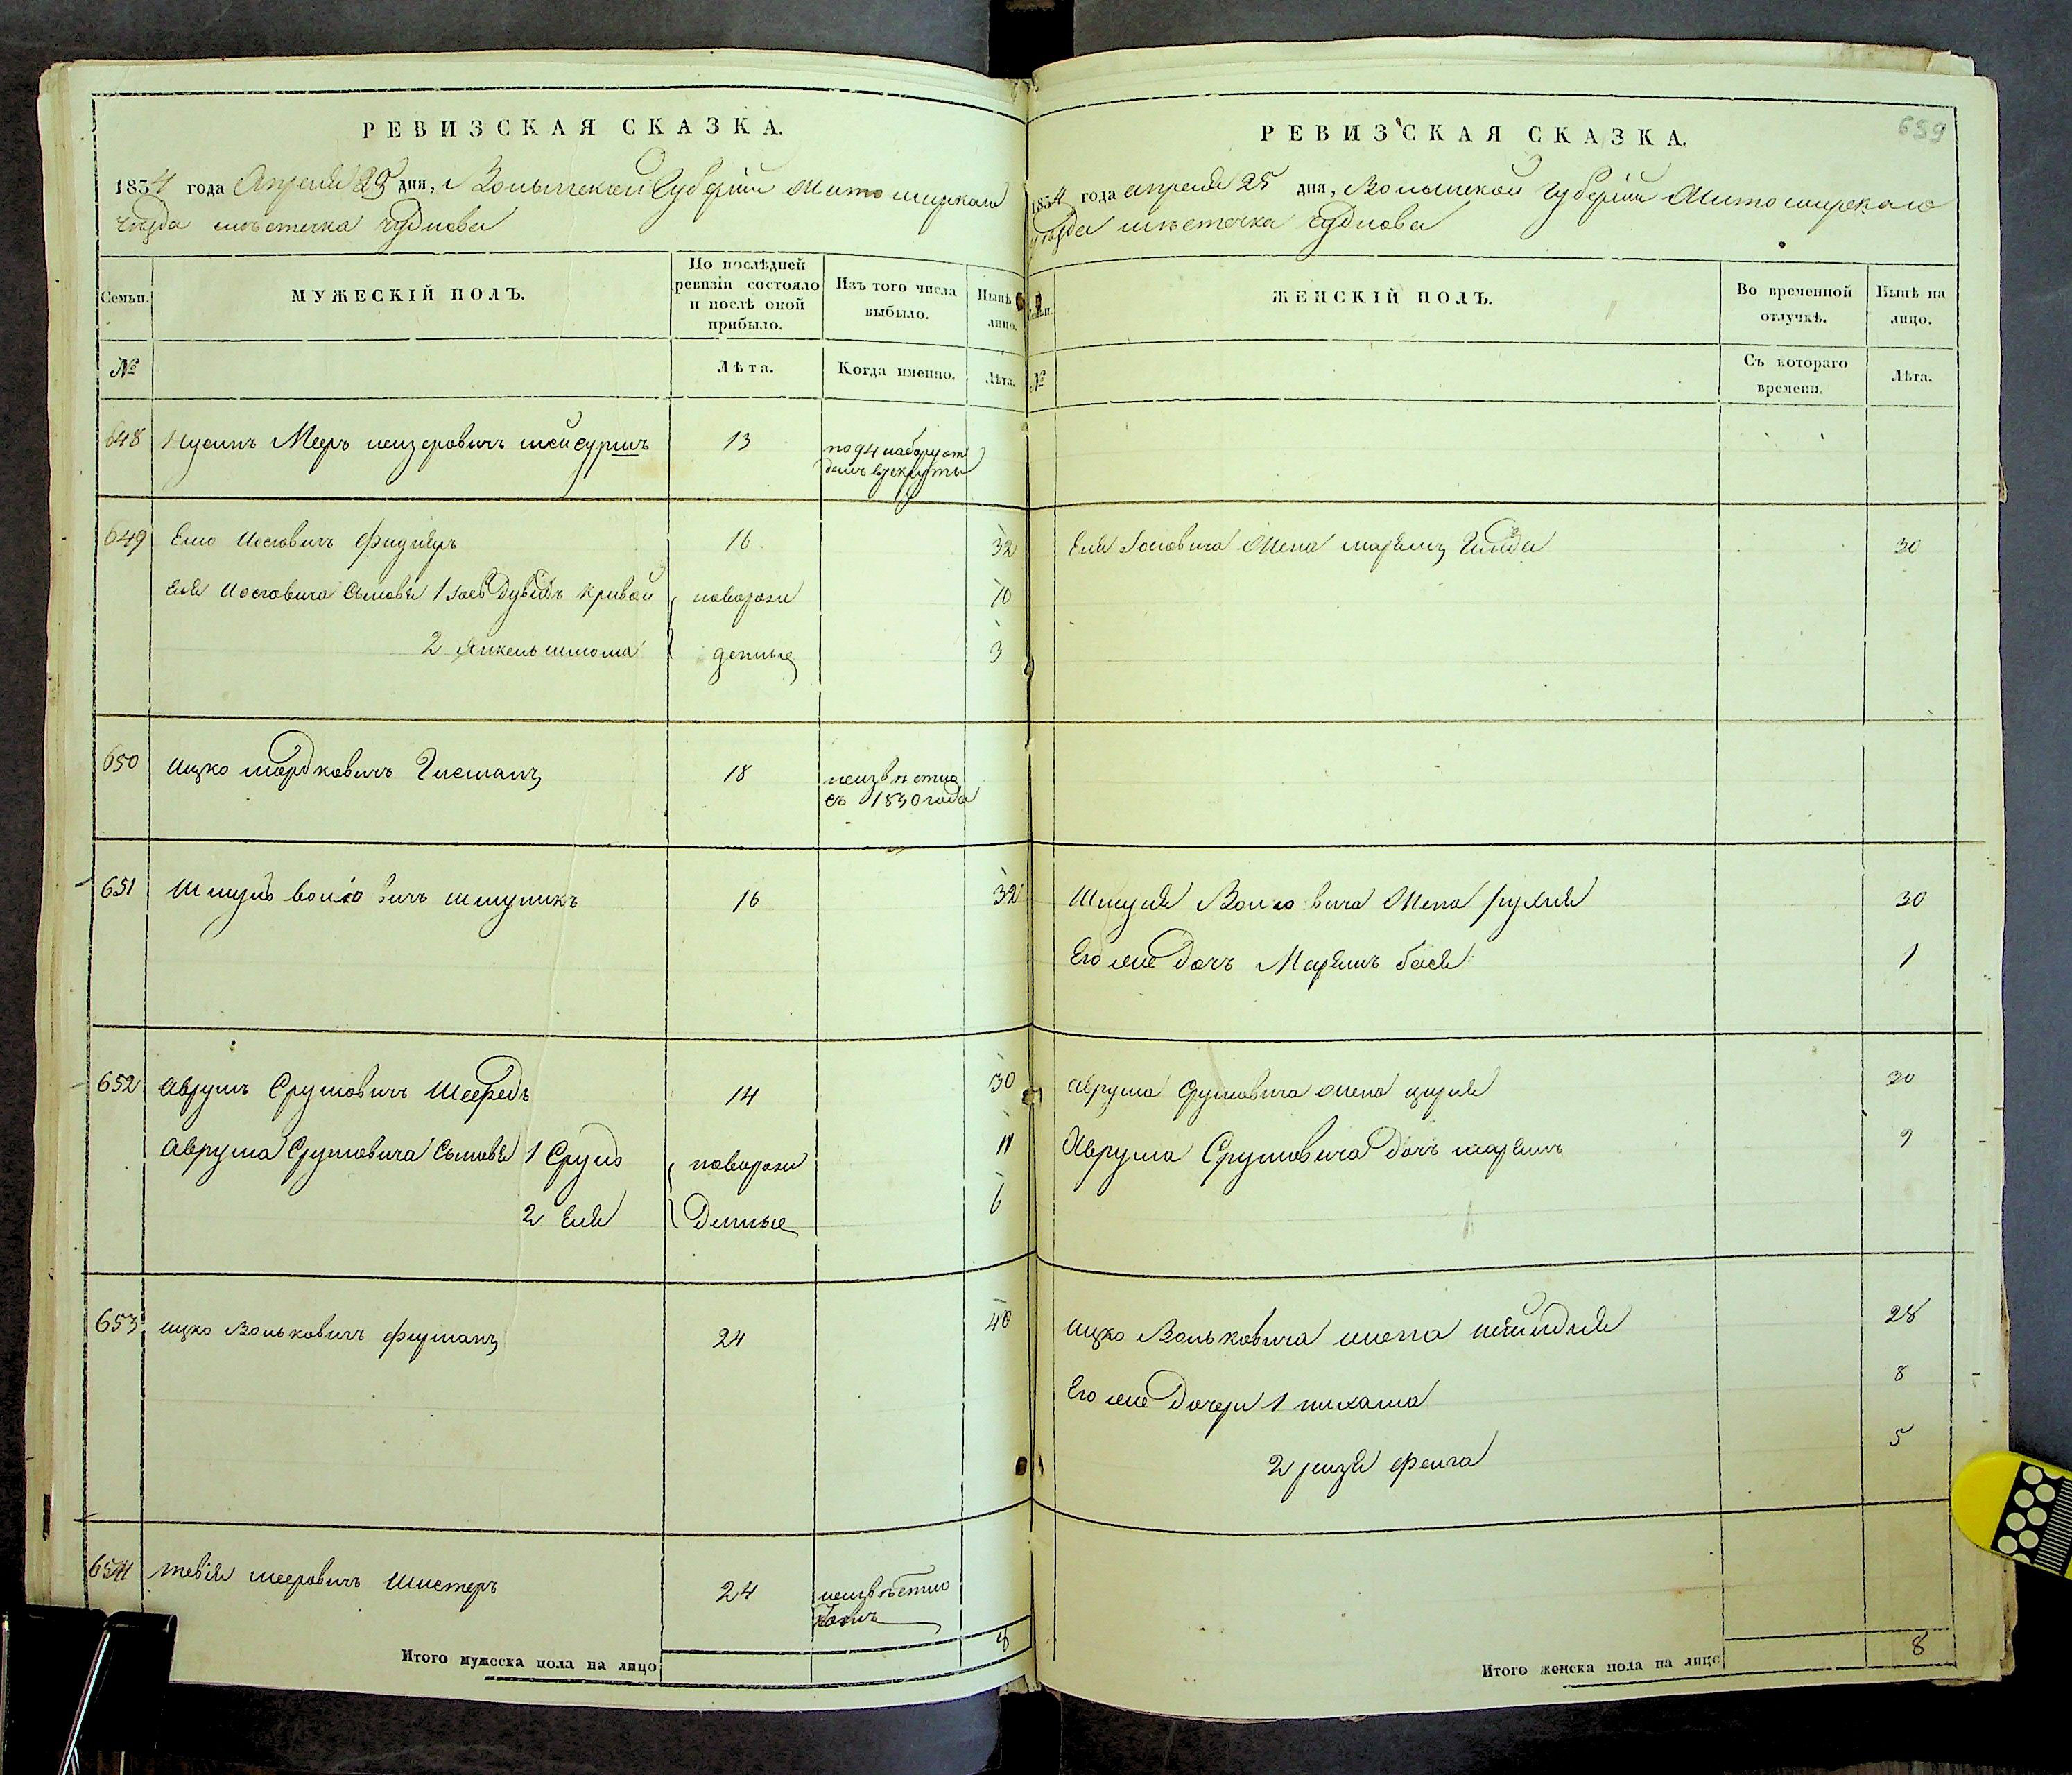 РЕВИЗСКАЯ СКАЗКА.
1834 года Апреля 25 дня, Волынской Губерніи Житомирскаго
уѣзда мѣстечка Чуднова
Семьи.
МУЖЕСКІЙ ПОЛЪ.
По послѣдней
ревизіи состояло
и послѣ оной
прибыло.
Изъ того числа
выбыло.
Нынѣ
лицо.
№
Лѣта.
Когда именно.
Лѣта.
648 Мееръ Лейзеровичъ 13
отданъ в рекруты
649 Елю Иосіовичъ 16 32
Еля Иосіовича Сыновья 1 Іось Дувидъ Кривой новорож 10
2 Янкель Шлома денные 3
650 Ицко Мордковичъ 18 неизвѣстно
съ 1830 года
651 Шмуль Волковичъ 16 32
652 Аврумъ Сруловичъ 14 30
Аврума Сруловича Сыновья 1 Сруль новорож 11
2 Еля денные 6
653 Ицко Вольковичъ Фурманъ 24 40
654 Тевія Мееровичъ 24 неизвѣстно
Итого мужеска пола на лицо 8
РЕВИЗСКАЯ СКАЗКА.
659
1834 года апреля 25 дня, Волынской Губерніи Житомирскаго
уѣзда мѣстечка Чуднова
№
ЖЕНСКІЙ ПОЛЪ.
Во временной
отлучкѣ.
Нынѣ на
лицо.
Съ котораго
времени.
Лѣта.
Еля Іосіовича Жена Марьямъ 30
Шмуля Волковича Жена Рухля 30
Его же Дочь Марьямъ Бася 1
Аврума Сруловича жена Цирля 30
Аврума Сруловича Дочь Марьямъ 9
Ицко Вольковича жена Шейндля 28
Его же Дочери 1 8
2 Рейзя Фейга 5
Итого женска пола на лицо 8